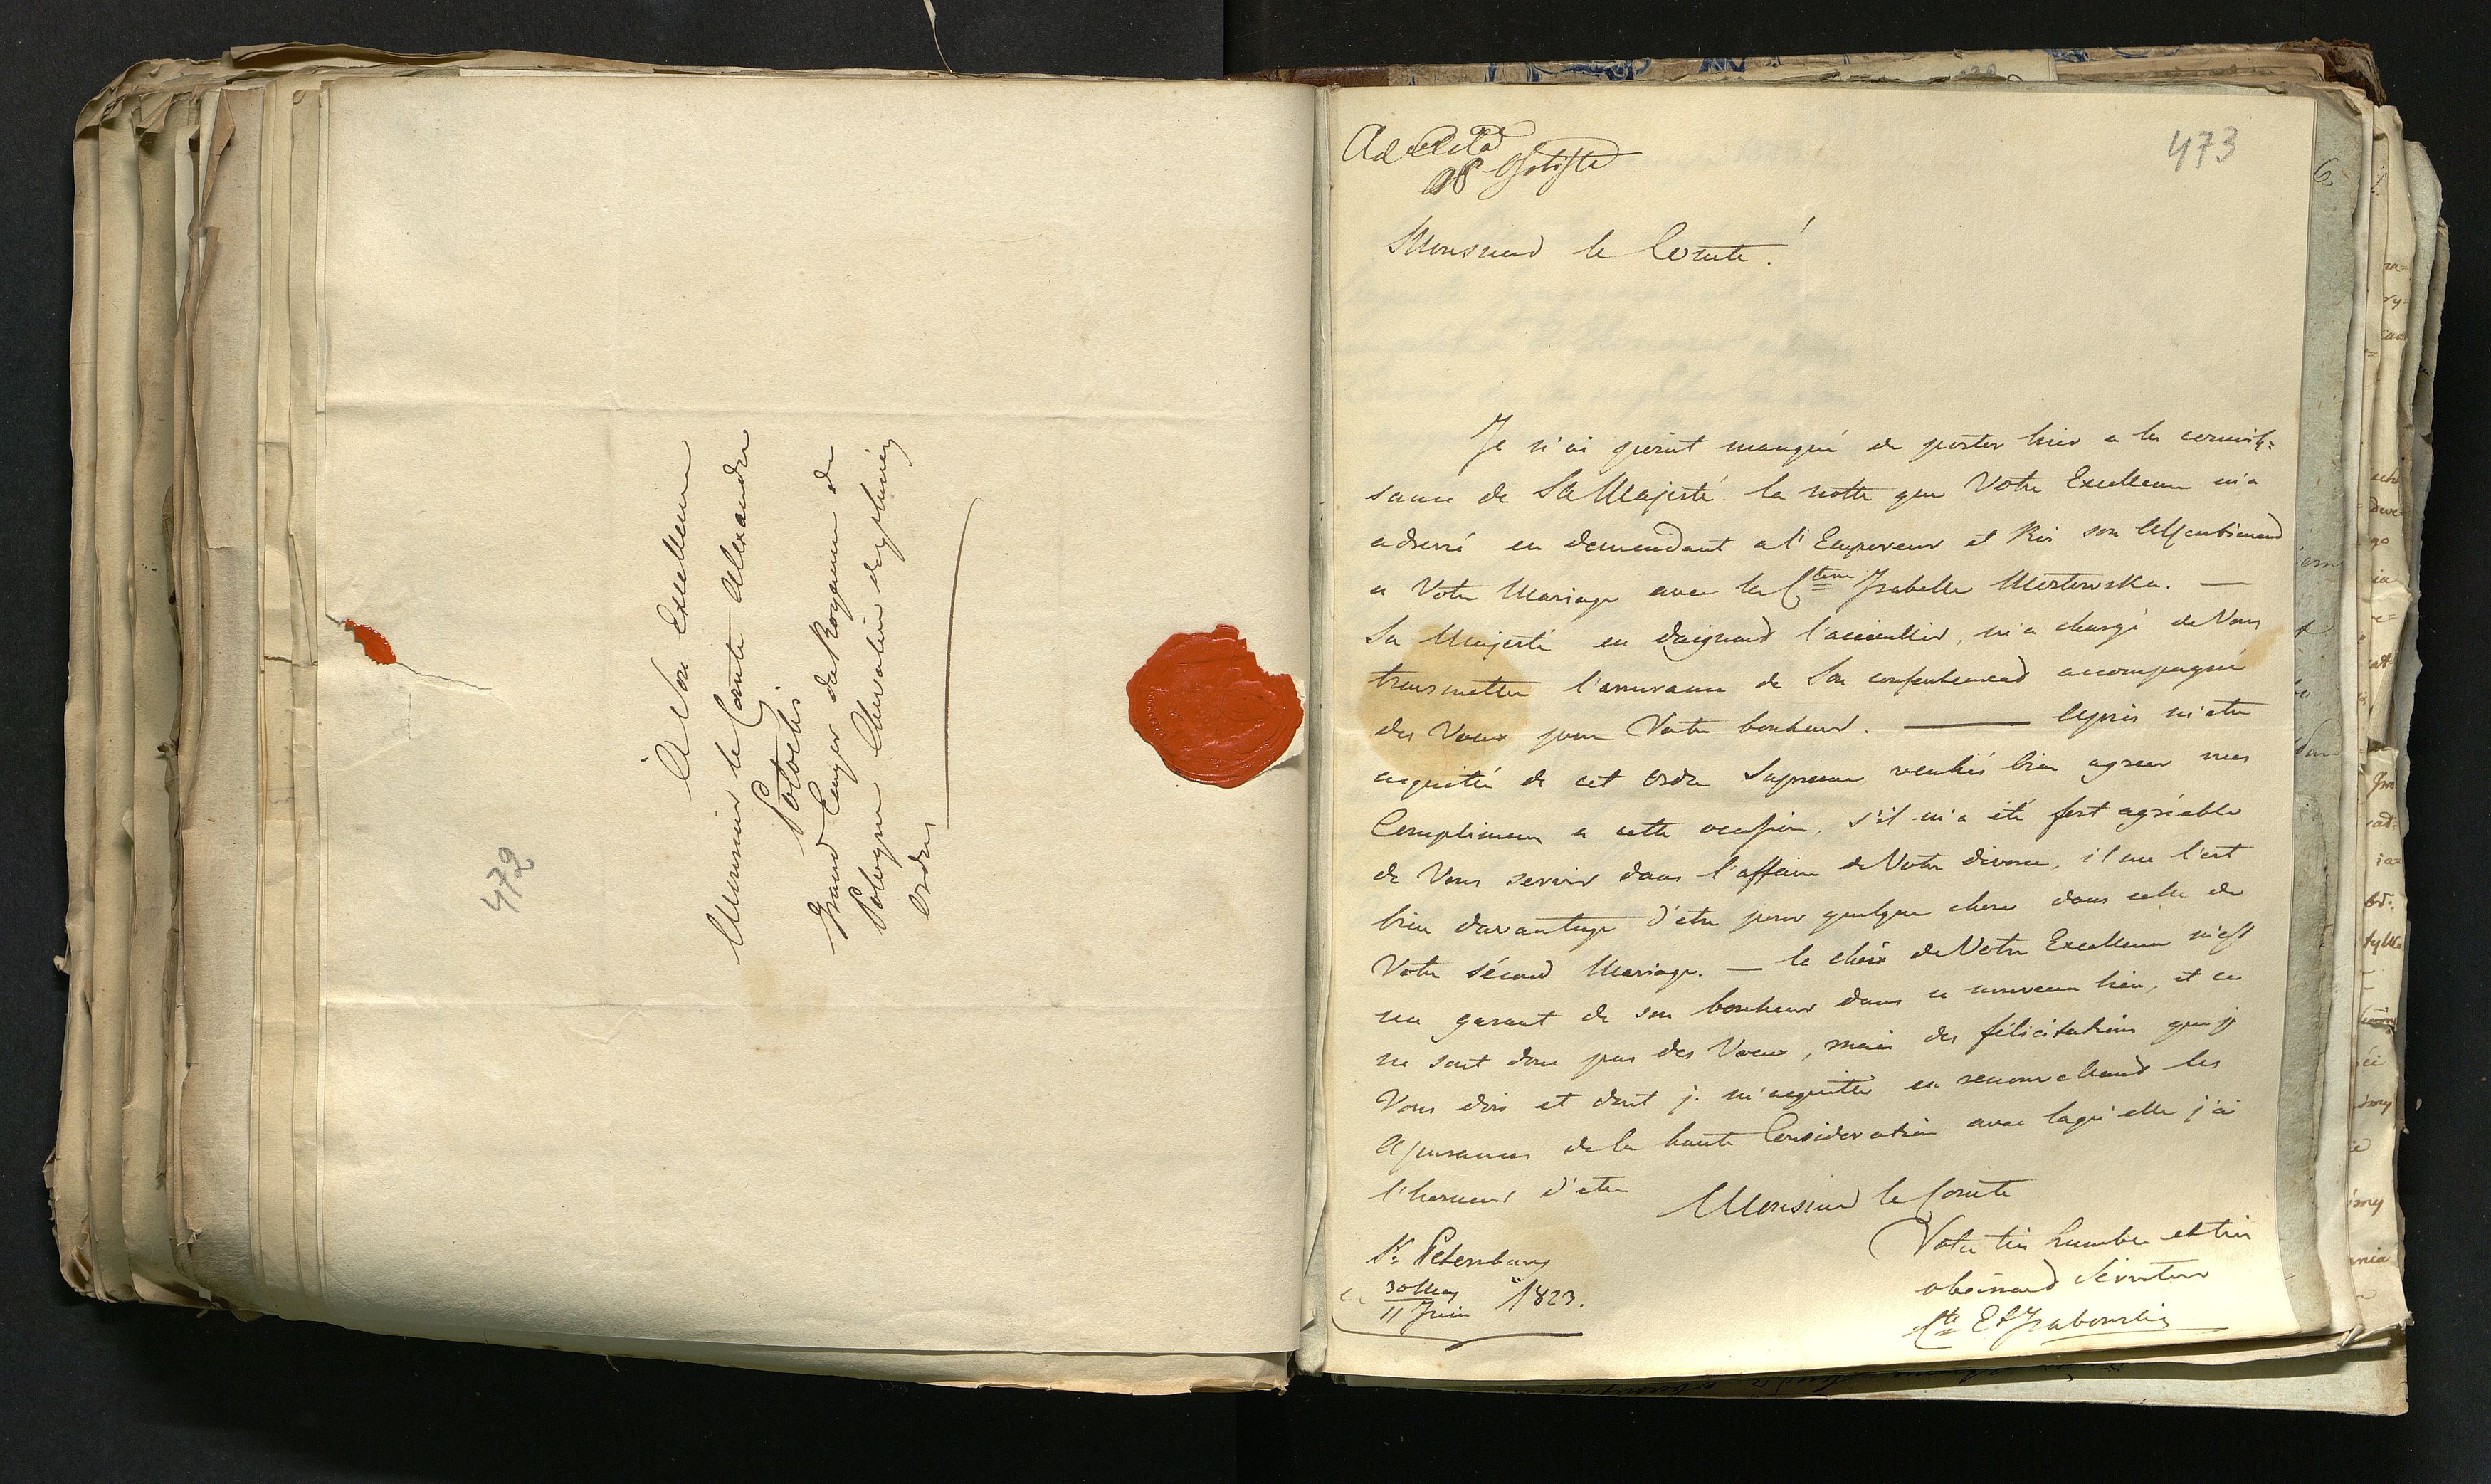 472
À Son Excellence
Monsieur le Comte Alexandre
Potocki
Grand Ecuyer du Royaume de
Pologne Chevalier de plusieurs
Ordres
473
Ad Acta
Monsieur le Comte!
Je n'ai point manqué de porter hier a la connois=
sance de Sa Majesté la notte que Votre Excellence m'a
adressé en demandant a l'Empereur et Roi son Assentiment
a Votre Mariage avec la Ctesse Isabelle Mostowska. —
Sa Majesté en daignand l'accueillir, m'a chargé de Vous
transmettre l'assurance de Son consentement accompagné
des Voeux pour Votre bonheur. — Après m'etre
acquitté de cet Ordre Supreme veuliés bien agreer mes
Complimens a cette occasion. S'il m'a été fort agréable
de Vous servir dans l'affaire de Votre divorce, il me l'est
bien davantage d'etre pour quelque chose dans celle de
Votre sécond Mariage. — le choix de Votre Excellence m'est
un garant de son bonheur dans ce nouveau lien, et ce
ne sont donc pas des Voeux, mais des félicitations que je
Vous dois et dont je m'acquitte en renouvelland les
Assurances de la haute Consideration avec laqu'elle j'ai
l'honneur d'etre Monsieur le Comte
Votre très humble et très
obeissand Serviteur
St. Petersbourg
30 May
11 Juin 1823.
Cte Grabowski